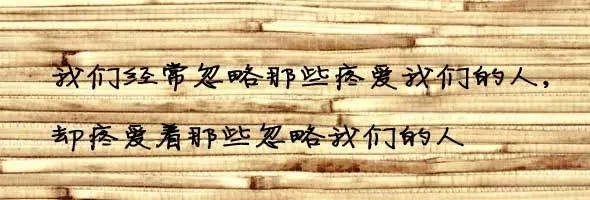 我们经常忽略那些疼爱我们的人，
却疼爱着那些忽略我们的人